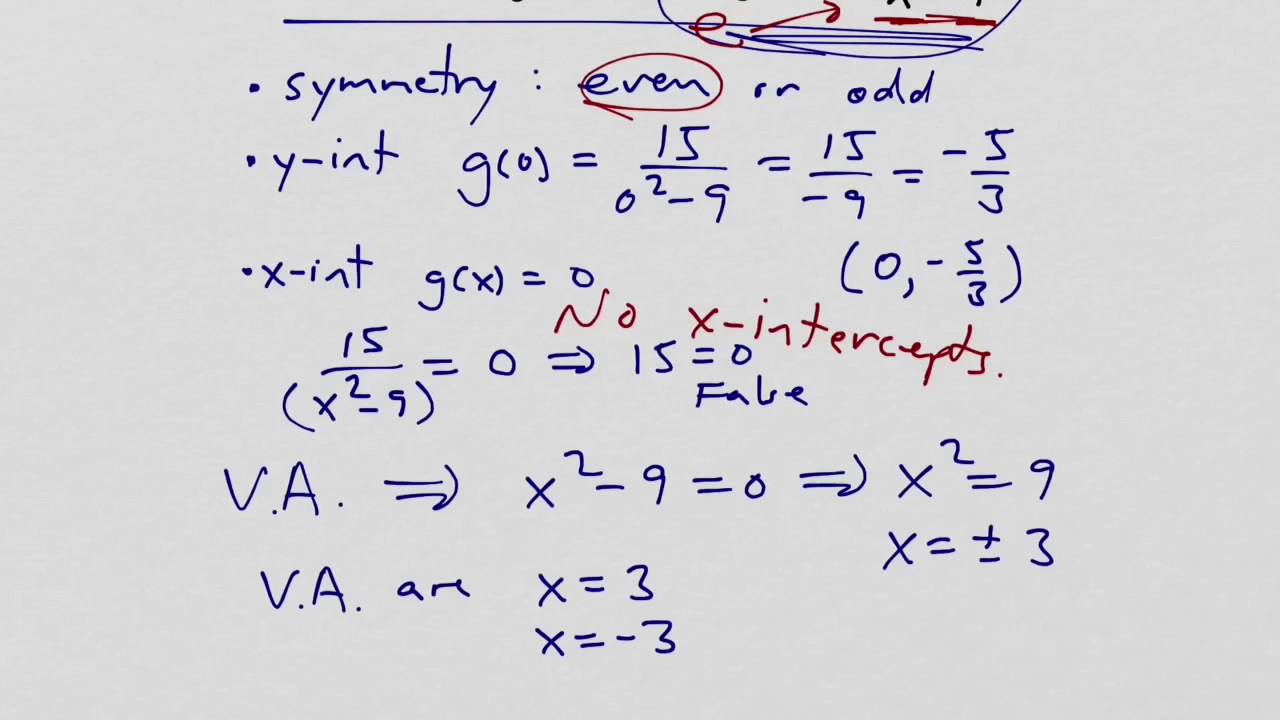 • symmetry : even or odd
• y-int g(0) = 15/(0²-9) = 15/-9 = -5/3
(0, -5/3)
• x-int g(x) = 0
No x-intercepts.
15/(x²-9) = 0 ⇒ 15 = 0
False
V.A. ⇒ x²-9 = 0 ⇒ x² = 9
x = ± 3
V.A. are x = 3
x = -3